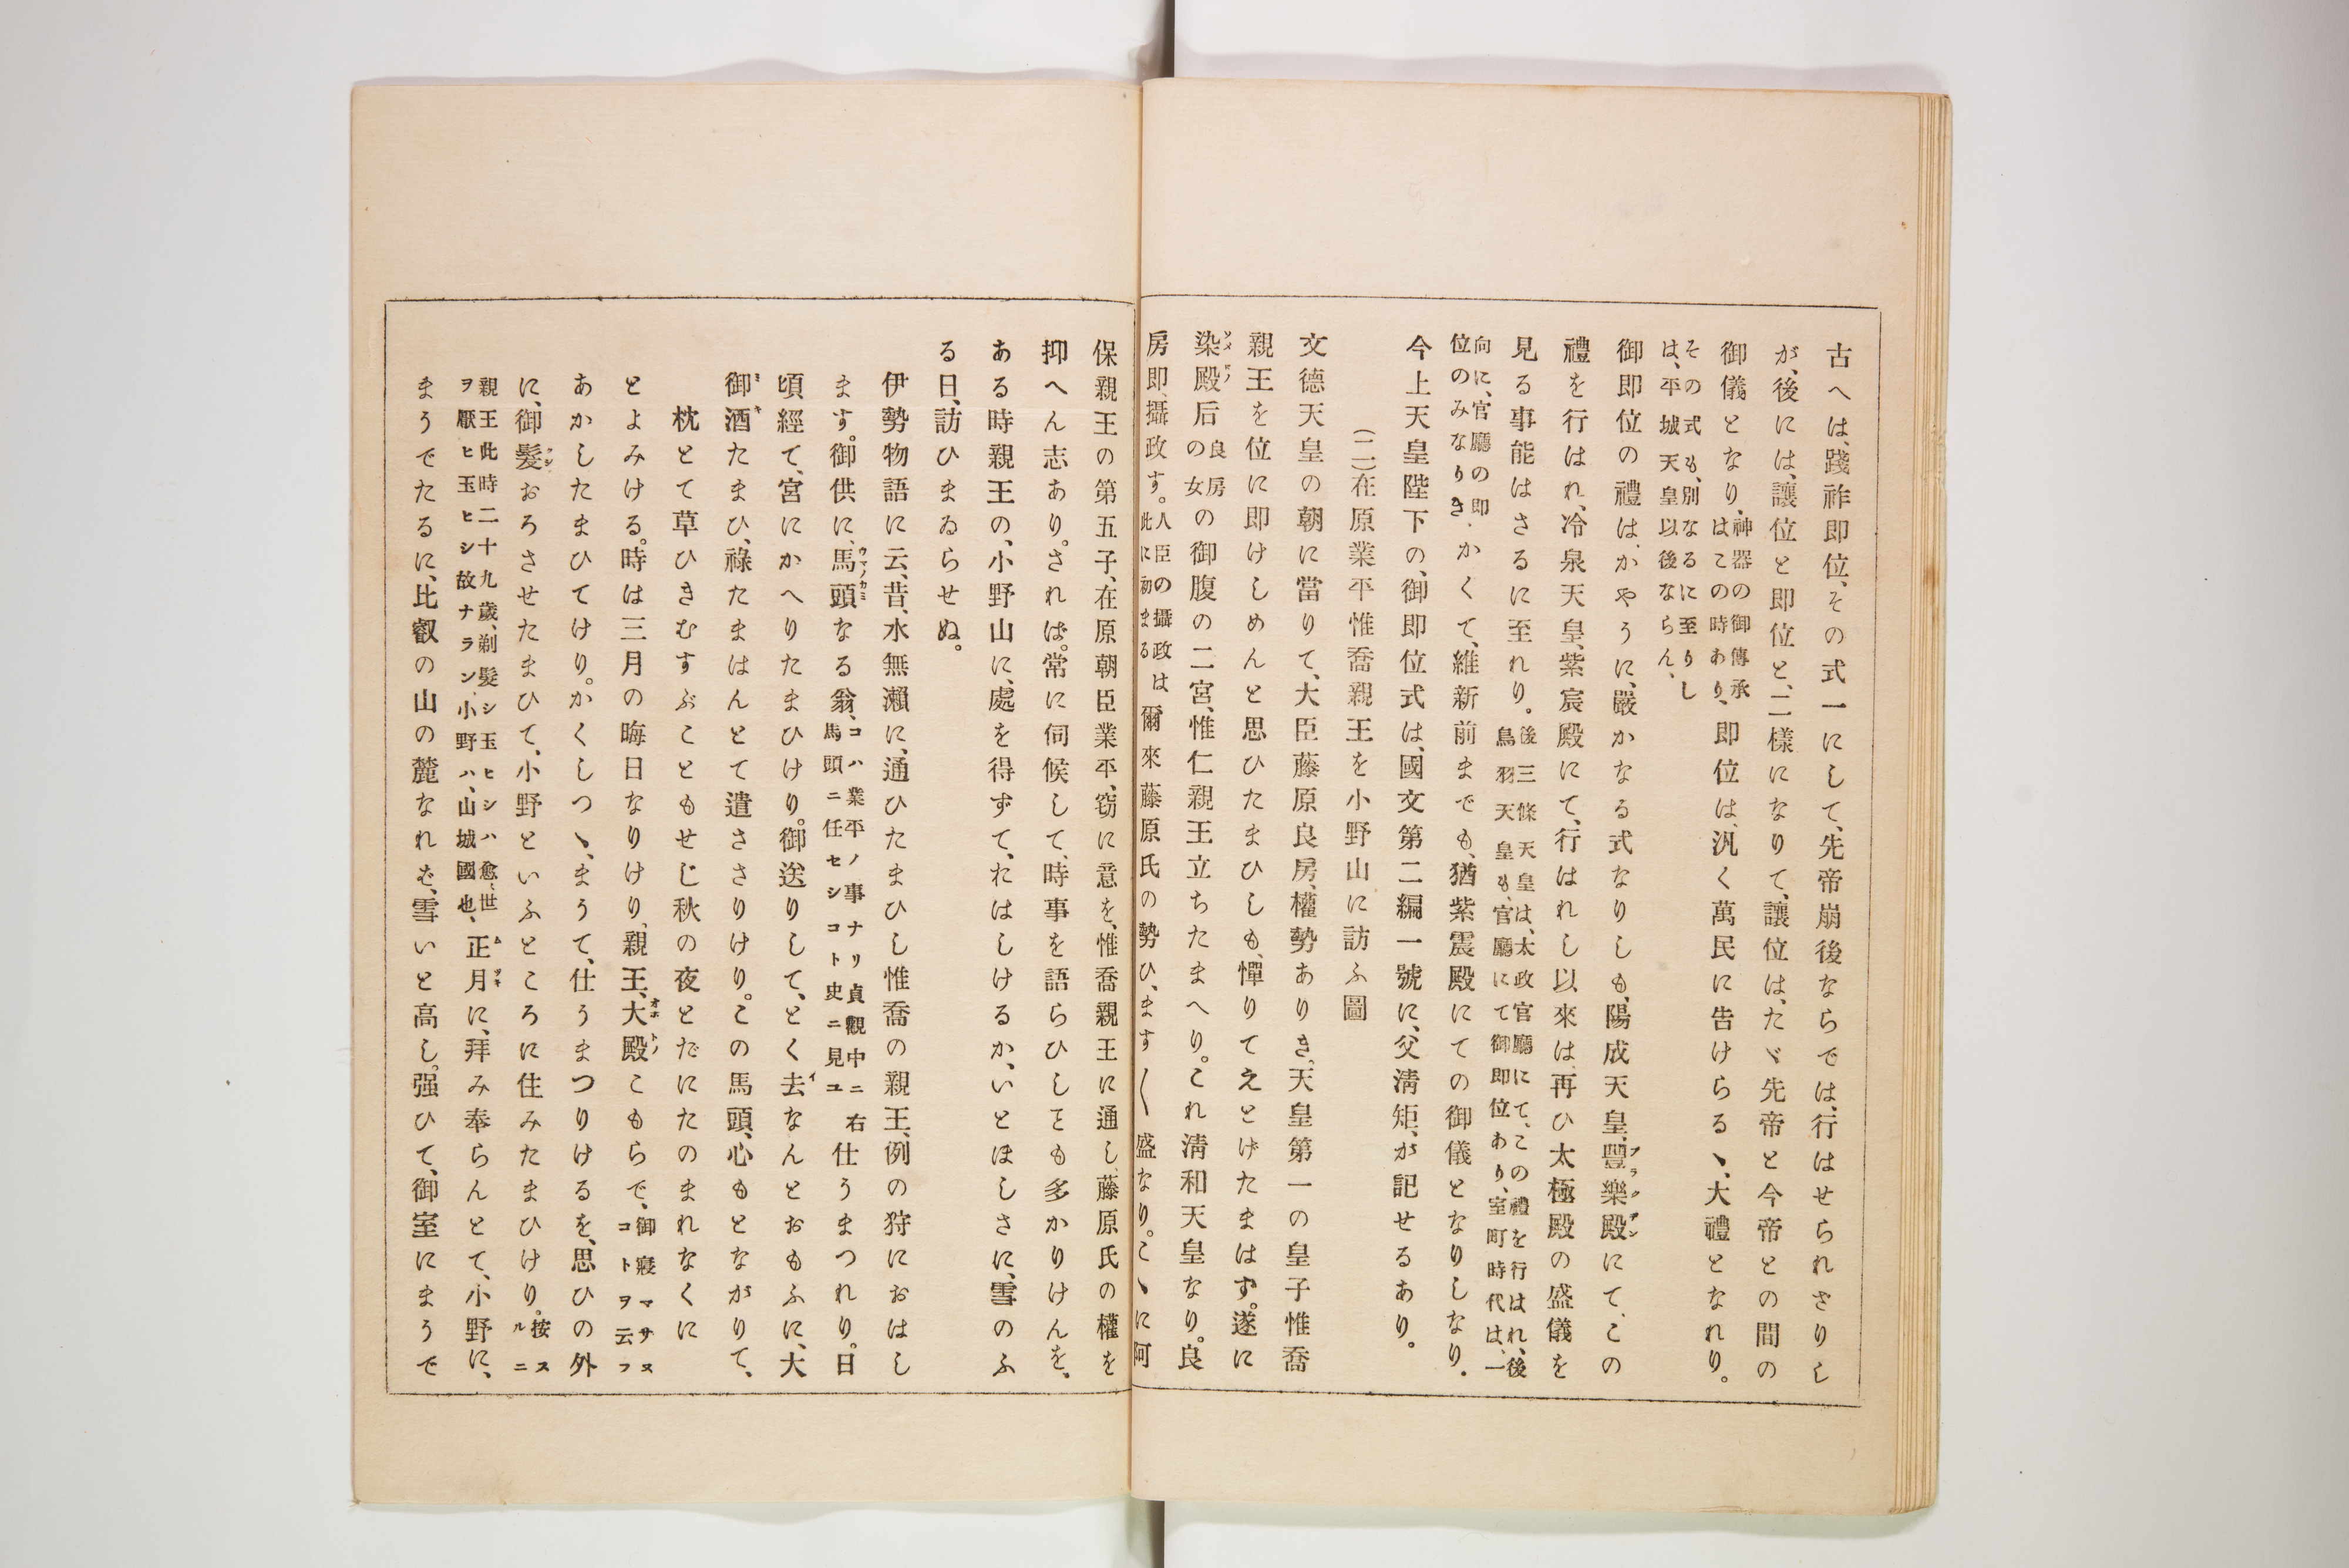 古へは、踐祚即位、その式一にして、先帝崩後ならでは、行はせられさりし
が、後には、讓位と即位と、二樣になりて、讓位は、たゞ先帝と今帝との間の
御儀となり、神器の御傳承はこの時あり、即位は、汎く萬民に告けらるゝ、大禮となれり。
その式も、別なるに至りしは、平城天皇以後ならん、
御即位の禮は、かやうに、嚴かなる式なりしも、陽成天皇、豐樂殿にて、この
禮を行はれ、冷泉天皇、紫宸殿にて、行はれし以來は、再ひ太極殿の盛儀を
見る事能はさるに至れり。後三條天皇は、太政官廳にて、この禮を行はれ、後鳥羽天皇も、官廳にて御即位あり、室町時代は、一
向に、官廳の即位のみなりき、かくて、維新前までも、猶紫震殿にての御儀となりしなり。
今上天皇陛下の、御即位式は、國文第二編一號に、父淸矩、が記せるあり。
(二)在原業平惟喬親王を小野山に訪ふ圖
文德天皇の朝に當りて、大臣藤原良房、權勢ありき。天皇第一の皇子惟喬
親王を位に即けしめんと思ひたまひしも、憚りてえとげたまはず。遂に
染殿后良房の女の御腹の二宮、惟仁親王立ちたまへり。これ淸和天皇なり。良
房即、攝政す。人臣の攝政は此に初まる爾來藤原氏の勢ひ、ます〱盛なり。こゝに阿
保親王の第五子、在原朝臣業平、窃に意を、惟喬親王に通し、藤原氏の權を
抑へん志あり。されば。常に伺候して、時事を語らひしても多かりけんを、
ある時親王の、小野山に、處を得ずて、たはしけるか、いとほしさに、雪のふ
る日、訪ひまゐらせぬ。
伊勢物語に云、昔、水無瀨に、通ひたまひし惟喬の親王、例の狩におはし
ます。御供に、馬頭なる翁、コハ業平ノ事ナリ貞觀中ニ右馬頭ニ任セシコト史ニ見ユ仕うまつれり。日
頃經て、宮にかへりたまひけり。御送りして、とく去なんとおもふに、大
御酒たまひ、祿たまはんとて遣ささりけり。この馬頭、心もとながりて、
枕とて草ひきむすぶこともせじ秋の夜とだにたのまれなくに
とよみける。時は三月の晦日なりけり、親王、大殿こもらで、御寢マサヌコトヲ云フ
あかしたまひてけり。かくしつゝ、まうて、仕うまつりけるを、思ひの外
に、御髮おろさせたまひて、小野といふところに住みたまひけり。按スルニ
親王此時二十九歲、剃髮シ玉ヒシハ愈〻世ヲ厭ヒ玉ヒシ故ナラン、小野ハ、山城國也、正月に、拜み奉らんとて、小野に、
まうでたるに、比叡の山の麓なれば、雪いと高し。强ひて、御室にまうで